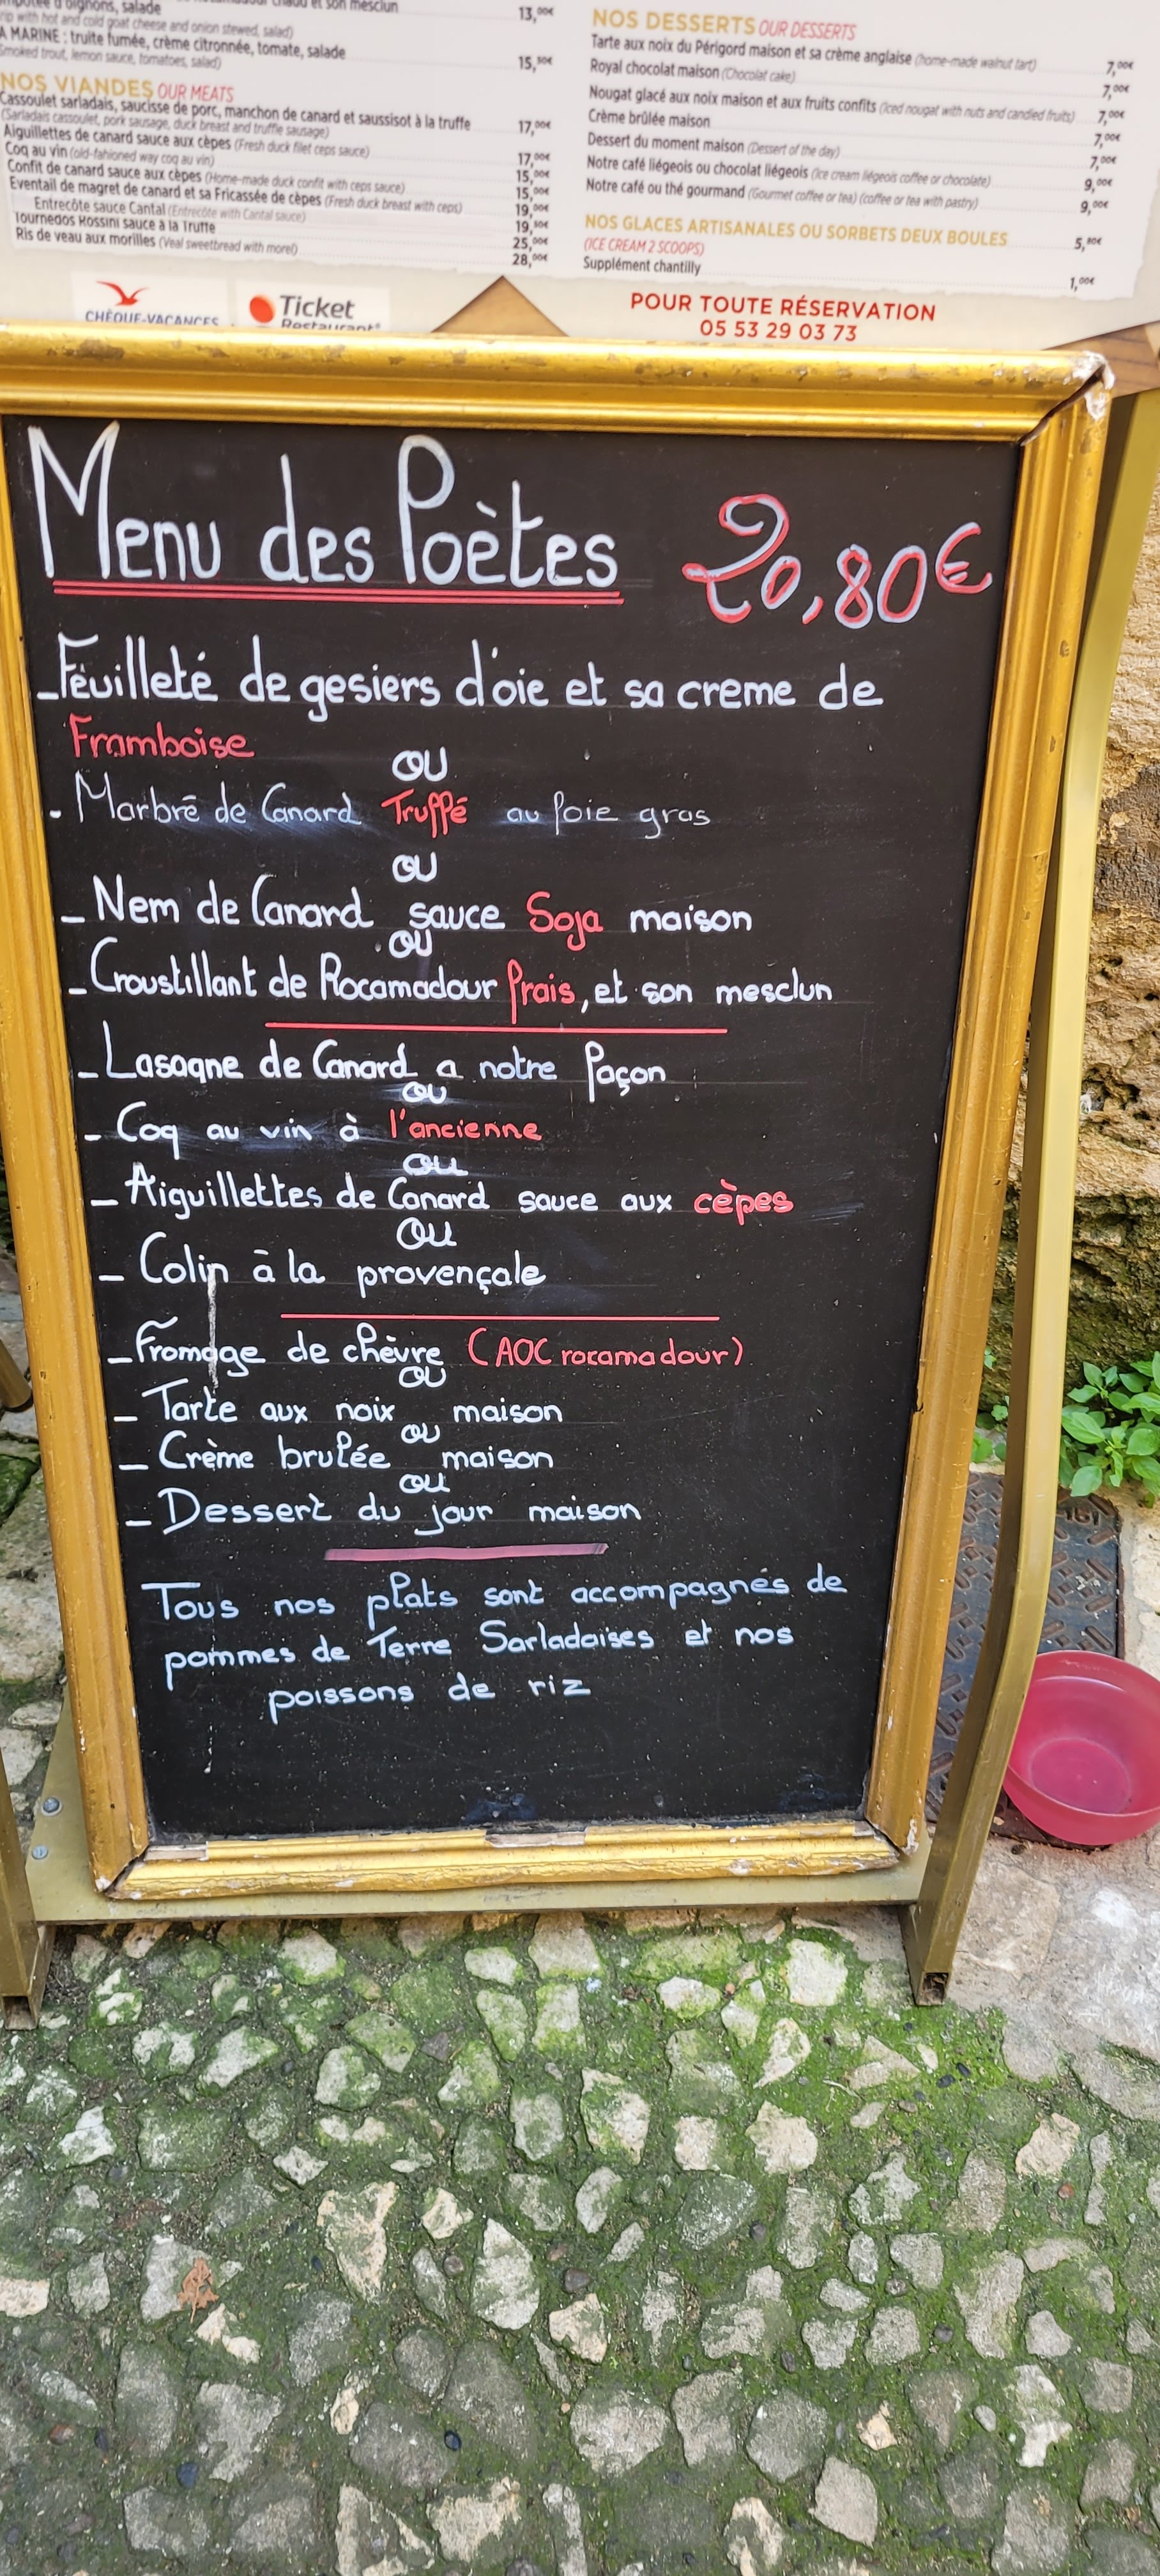 d'oignons, salade
with hot and cold goat cheese and onion stewed, salad)
13,00€
A MARINE : truite fumée, crème citronnée, tomate, salade
Smoked trout, lemon sauce, tomatoes, salad)
15,50€
NOS VIANDES OUR MEATS
Cassoulet sarladais, saucisse de porc, manchon de canard et saussisot à la truffe 17,00€
(Sarladais cassoulet, pork sausage, duck breast and truffle sausage)
Aiguillettes de canard sauce aux cèpes (Fresh duck filet ceps sauce) 17,00€
Coq au vin (old-fahioned way coq au vin) 15,00€
Confit de canard sauce aux cèpes (Home-made duck confit with ceps sauce) 15,00€
Eventail de magret de canard et sa Fricassée de cèpes (Fresh duck breast with ceps) 19,00€
Entrecôte sauce Cantal (Entrecôte with Cantal sauce) 19,50€
Tournedos Rossini sauce à la Truffe 25,00€
Ris de veau aux morilles (Veal sweetbread with morel) 28,00€
CHÈQUE-VACANCES
Ticket
Restaurant®
NOS DESSERTS OUR DESSERTS
Tarte aux noix du Périgord maison et sa crème anglaise (home-made walnut tart) 7,00€
Royal chocolat maison (Chocolat cake) 7,00€
Nougat glacé aux noix maison et aux fruits confits (Iced nougat with nuts and candied fruits) 7,00€
Crème brûlée maison 7,00€
Dessert du moment maison (Dessert of the day) 7,00€
Notre café liégeois ou chocolat liégeois (Ice cream liégeois coffee or chocolate) 9,00€
Notre café ou thé gourmand (Gourmet coffee or tea) (coffee or tea with pastry) 9,00€
NOS GLACES ARTISANALES OU SORBETS DEUX BOULES 5,80€
(ICE CREAM 2 SCOOPS)
Supplément chantilly 1,00€
POUR TOUTE RÉSERVATION
05 53 29 03 73
Menu des Poètes 20,80€
- Feuilleté de gesiers d'oie et sa creme de
Framboise
OU
- Marbré de Canard Truffé au foie gras
OU
- Nem de Canard sauce Soja maison
OU
- Croustillant de Rocamadour frais, et son mesclun
- Lasagne de Canard a notre façon
OU
- Coq au vin à l'ancienne
OU
- Aiguillettes de Canard sauce aux cèpes
OU
- Colin à la provençale
- Fromage de chèvre (AOC rocamadour)
OU
- Tarte aux noix maison
OU
- Crème brulée maison
OU
- Dessert du jour maison
Tous nos plats sont accompagnés de
pommes de Terre Sarladaises et nos
poissons de riz